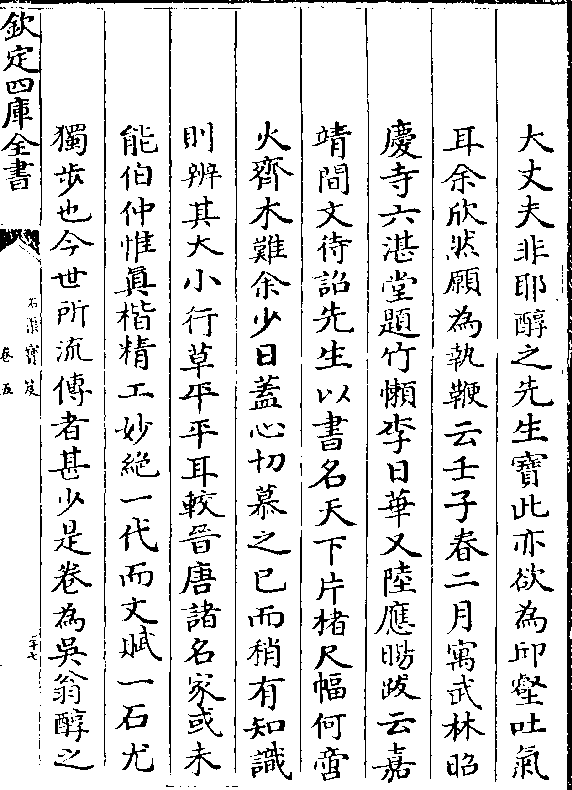 大丈夫非耶醇之先生寶此亦欲為邱壑吐氣
耳余欣然願為執鞭云壬子春二月寓武林昭
慶寺六湛堂題竹懶李日華又陸應暘跋云嘉
靖間文待詔先生以書名天下片楮尺幅何啻
火齊木難余少日蓋心切慕之已而稍有知識
則辨其大小行草平平耳較晉唐諸名家或未
能伯仲惟眞楷精工妙絕一代而文賦一石尤
獨步也今世所流傳者甚少是卷為吳翁醇之
欽定四庫全書
石渠寶笈
卷五
二十七